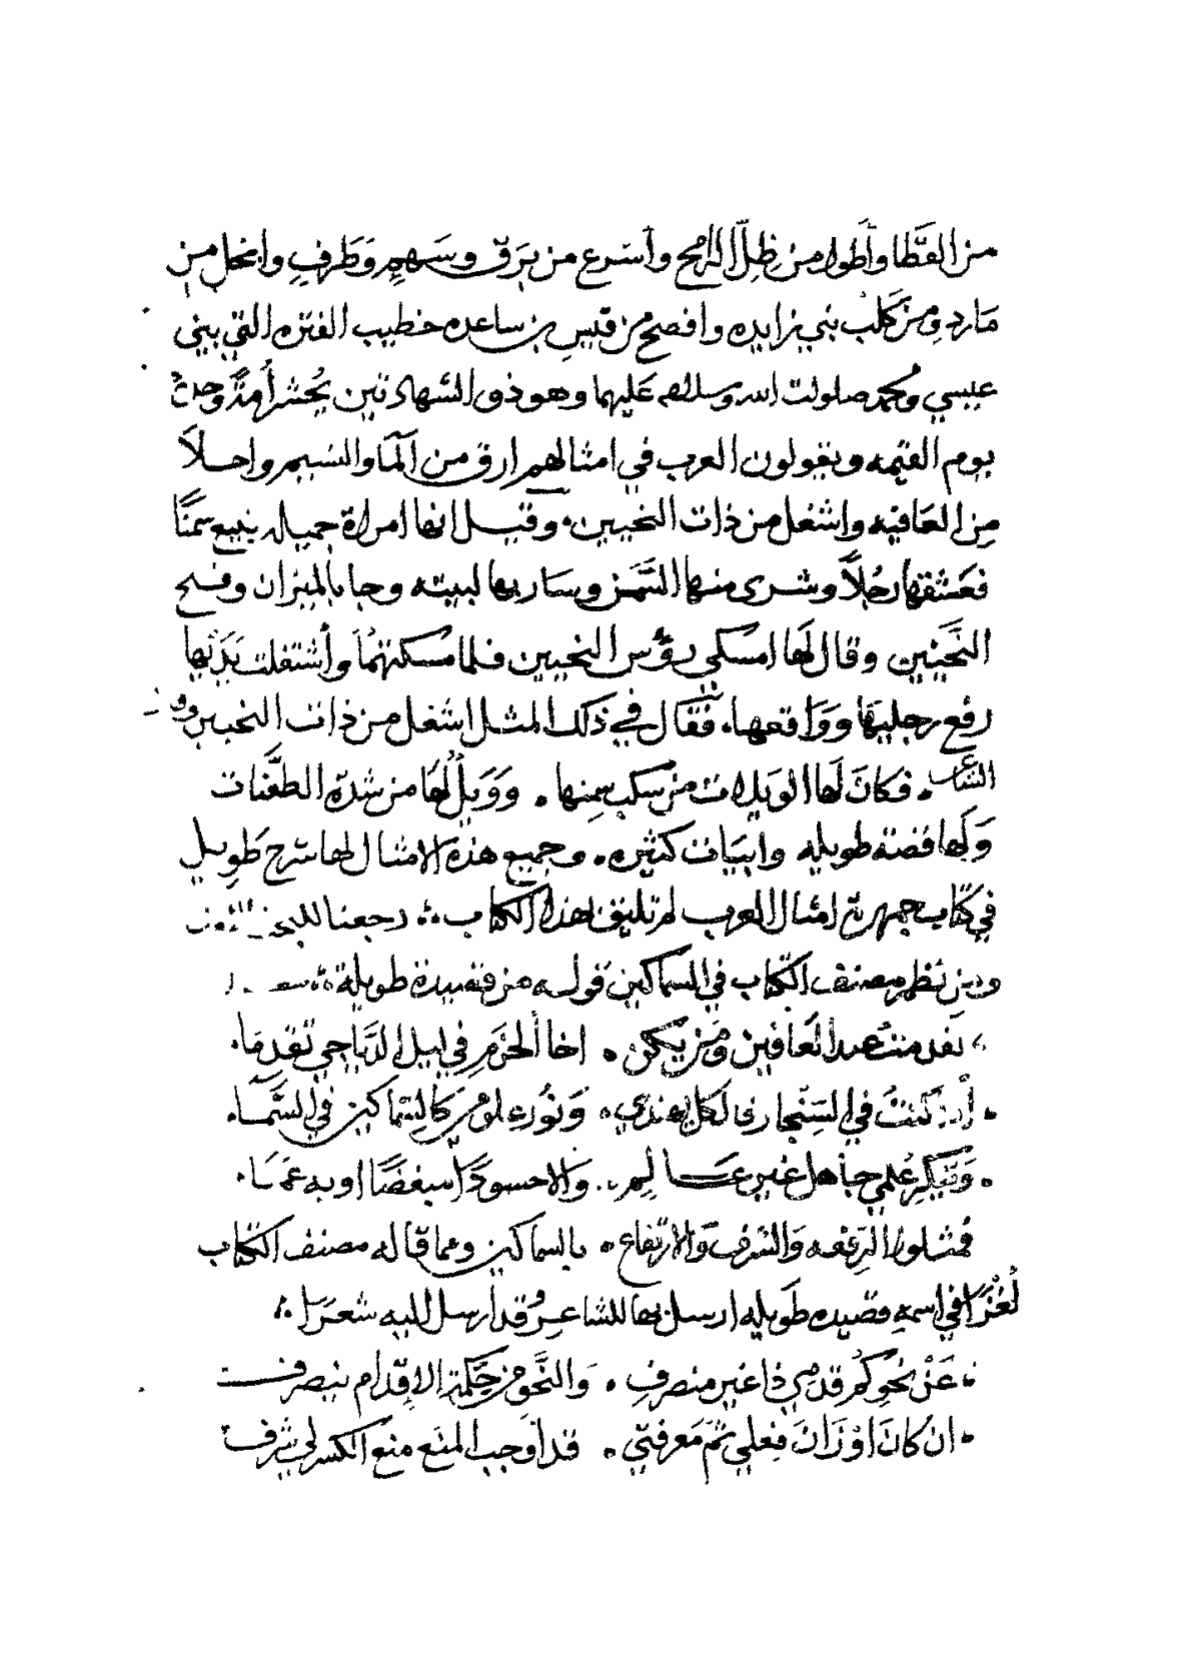 من القَطَا وأَطول من ظِلّ الرمح وأَسرع من بَرَق وسَهمٍ وَطَرفٍ وابخل من
مَارد ومن كَلب بني زايده وافصح من قيسِ بن ساعده خطيب الفتره التي بيني
عيسي ومحمد صلوات الله وسلامه عَليهما وهو ذو الشهادتين يُحشر أمةً وحده
يوم القيمه ويقولون العرب في امثالهم ارق من المآ والنسيم واحلاَ
مِن العَافيه واشغل من ذات النحيين. وقيل انها امراة جميله تبيع سمنًا
فعَشقها رجُلاً وشرى منها السَّمن وسَار بها لبيته وجا بالميزان وفتح
النَّحيَين وقال لَها امسكي رؤس النحيين فلما مسكتهُما وأشتغلت يَدَيْها
رفع رجليها ووَاقعها. فقَال في ذلك المثل اشغل من ذات النحيين وقـ
الشاعر. فكانَ لَها الويلات من سكب سمِنها. وَوَيلٌ لَها من شدة الطعَّنات
وَلها قصة طويله وابيَات كثيره. وجميع هذه الامثال لها شرح طَوِيل
في كتَاب جمهرة امثال العرب لم تليق بهذا الكتاب. رجعنا
ومن نظم مصنف الكتاب في السماكين قوله من قصيدة طويلة
تقدمت عند العَافين ومَن يكن. اخا الحَزم في ليل الدَّياجي تَقدمَا.
كنتُ في السِّنجاري لكل مهتدي. وَنُور علومي كَالسِّماكين في السَّمَا.
وَيُنكر عُلمي جَاهل غير عَـالم. وَالا حسودًا مبغضًا او به عَمَا.
فمثلوا الرِفعه وَالشرف وَالارتفَاع. بالسماكين ومما قاله مصنف الكتاب
لُغْزًا في اسمهِ قصيده طَويله ارسل بها للشاعِر وقد أرسل اليه شعرَا
عَنْ نحوِكُم قدمي ذا غير منصرفِ. وَالنحَّو من حِكمة الاقدام ينصرف
ان كانَ اوْزَانَ فعلي ثمّ مَعرفتي. قد أوجب المنَع منعَ الكسر لي شرف